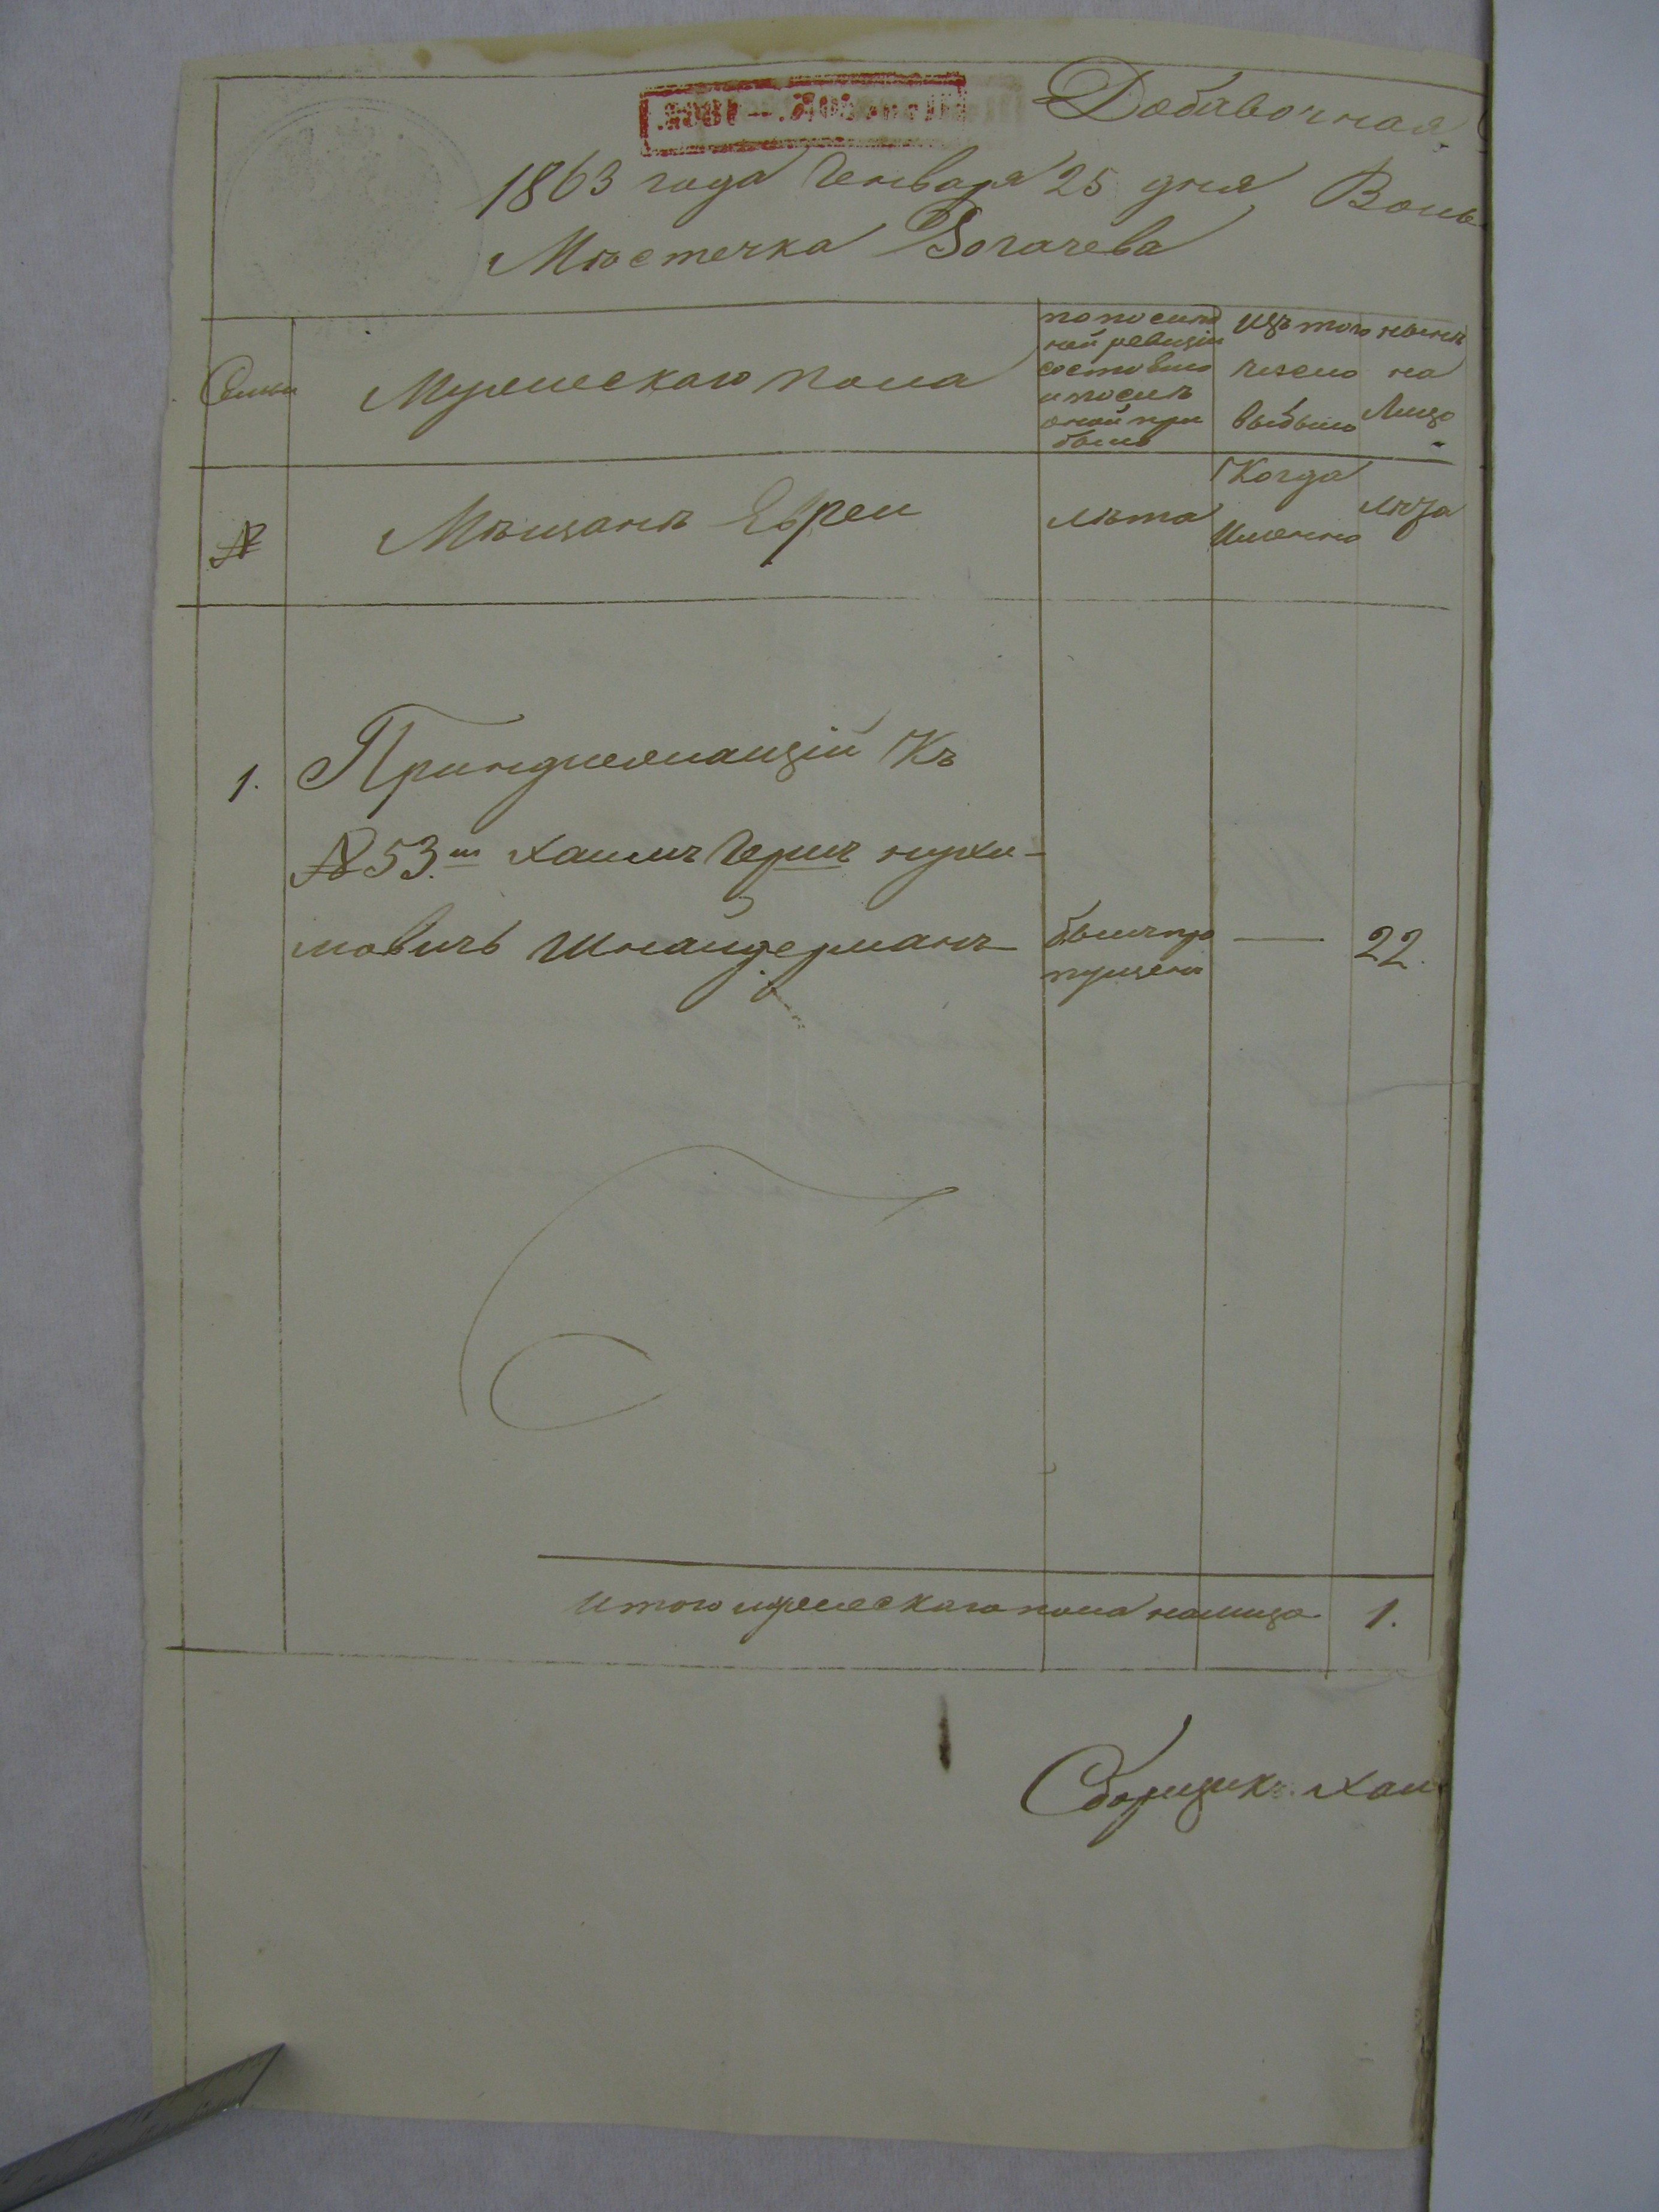 Добавочная
1863 года Генваря 25 дня Волы
Мѣстечка Рогачева
Семьи
Мужескаго пола
по послѣд
ней ревизіи
состояло
и послѣ
оной при
было
Изъ того
число
выбыло
нынѣ
на
Лицо
№
Мѣщанѣ Евреи
лѣта
Когда
Именно
лѣта
1. Принадлежащій Къ
№ 53.му Хаимъ Герш нухи-
мовичъ Шнайдерманъ
былъ про
пущенъ
— 22.
Итого мужескаго пола налицо 1.
Сборщикъ Хаи